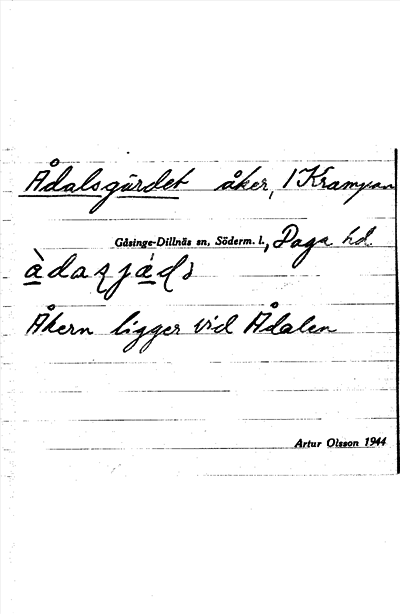 Ådalsgärdet åker, 1 Krampan
Gåsinge-Dillnäs sn, Söderm. l., Daga hd.
Åkern ligger vid Ådalen
Artur Olsson 1944